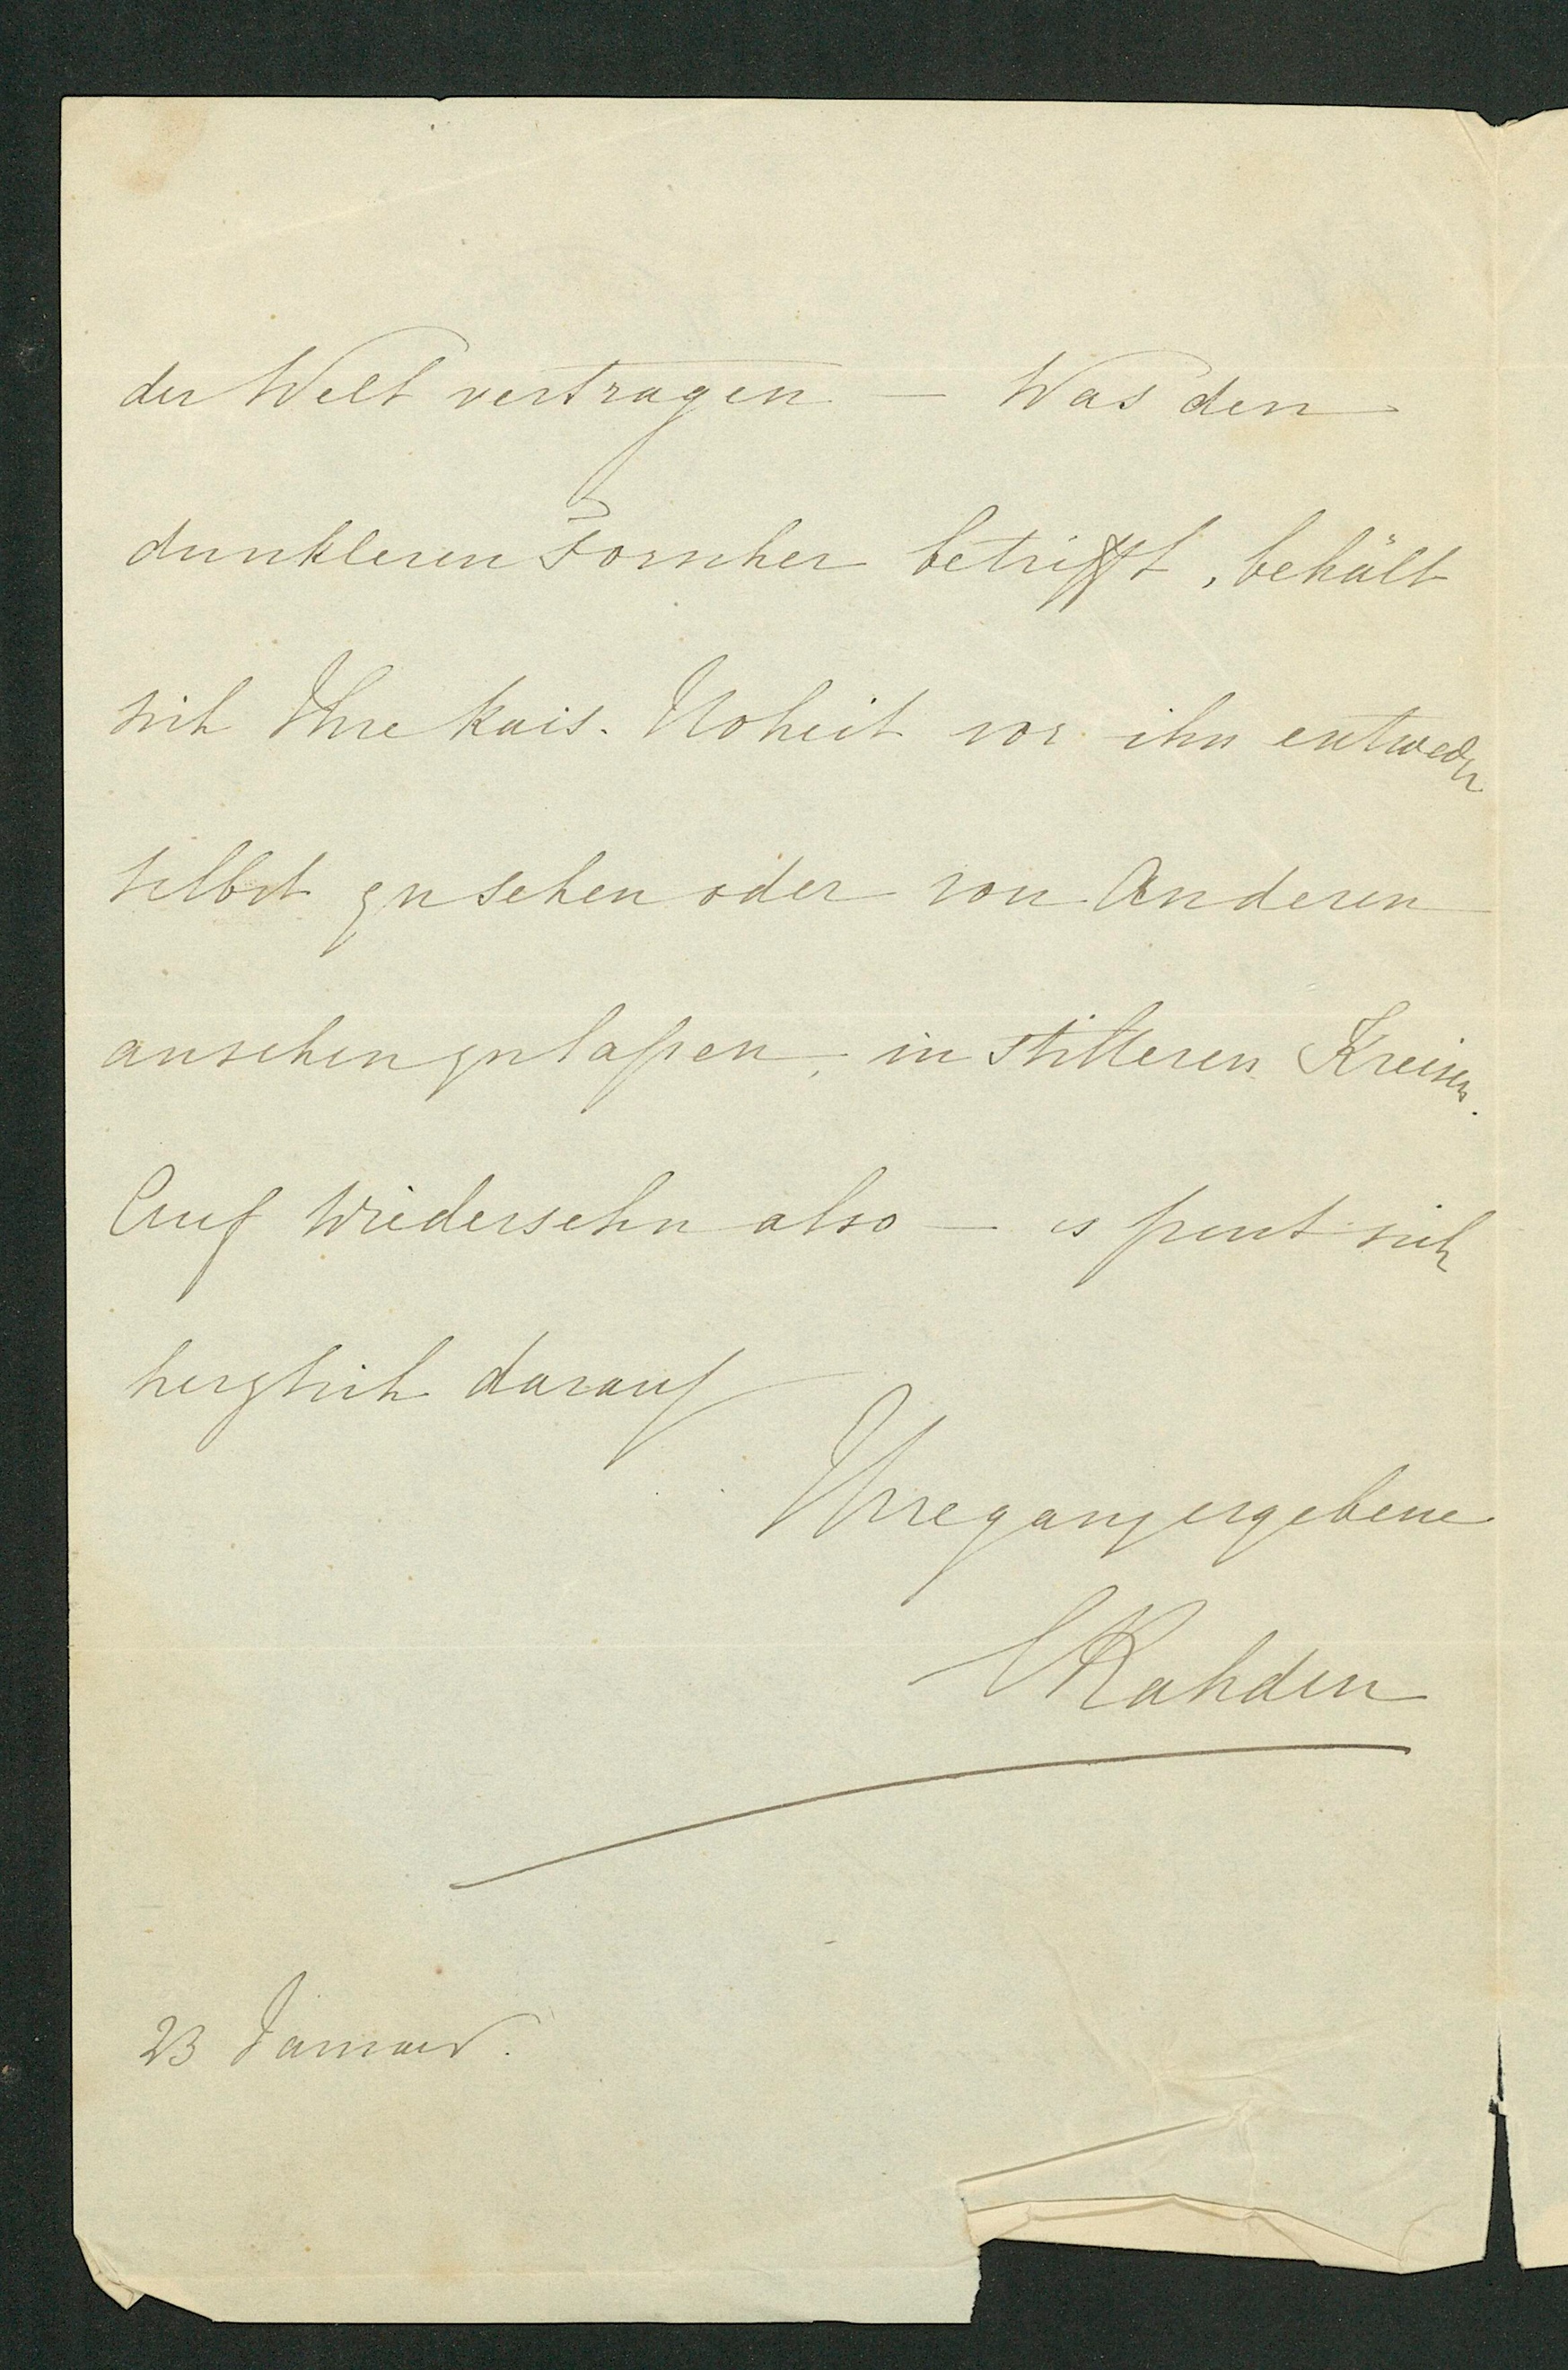 der Welt vertragen — Was den
dunkleren Forscher betrifft, behält
sich Ihre kais. Hoheit vor ihn entweder
selbst zu sehen oder von Anderen
ansehen zu laßen, in stilleren Kreisen.
Auf Wiedersehn also — es freut sich
herzlich darauf
Ihre ganz ergebene
E Rahden
23 Januar.